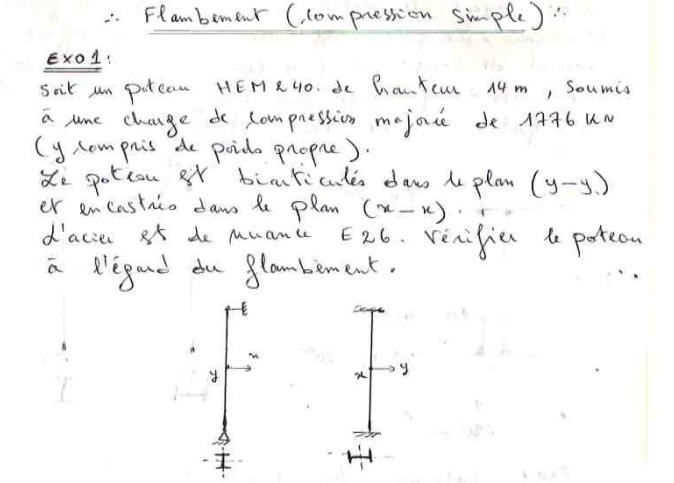 ∴ Flambement (compression simple) ∵
EXO1:
Soit un poteau HEM 240. de hauteur 14 m, soumis
à une charge de compression majorée de 1776 KN
(y compris de poids propre).
Le poteau est biarticulés dans le plan (y-y)
et encastrés dans le plan (x-x).
L'acier est de nuance E26. Vérifier le poteau
à l'égard du flambement.
x
y
x
y